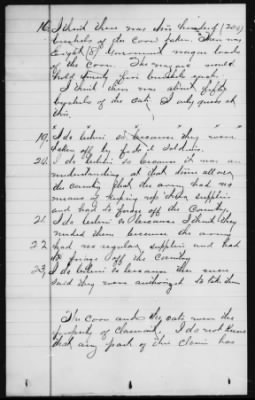 16. I think there was two hundred (200)
bushels of the corn taken. There was
eight (8) government wagon loads
of the corn. The wagons would
hold twenty five bushels each.
I think there was about fifty
bushels of the oats, I only guess at
this.
19. "I do" believe so because "they" "were"
taken off by fed'l soldiers.
20. I do believe so because it was an
understanding at that time all over
the country that the army had no
means of keeping up their supplies
and had to forage off the Country.
21. I do believe so because I think they
needed them because the army
22. had no regular supplies and had
to forage off the Country
23. I do believe so because they
said they were authorized to take them
The Corn and the oats were the
property of claimant. I do not know
that any part of this claim has